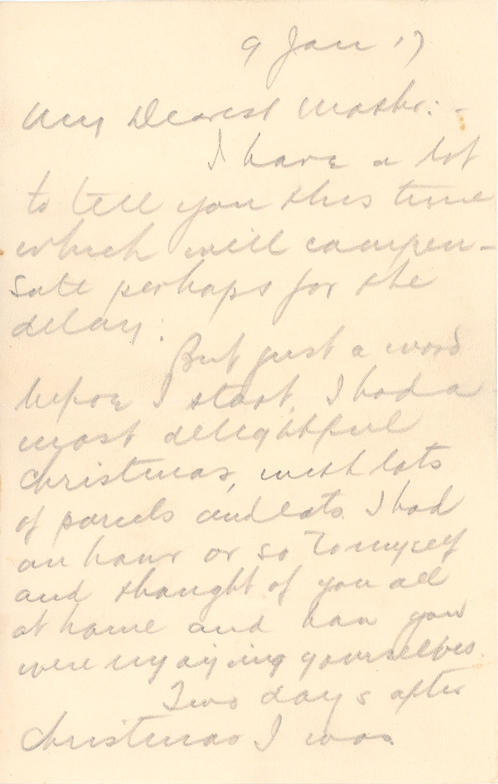 9 Jan 17
My Dearest Mother:-
I have a lot
to tell you this time
which will compen-
sate perhaps for the
delay.
But just a word
before I start. I had a
most delightful
Christmas, with lots
of parcels and eats. I had
an hour or so to myself
and thought of you all
at home and how you
were enjoying yourselves.
Two days after
Christmas I was